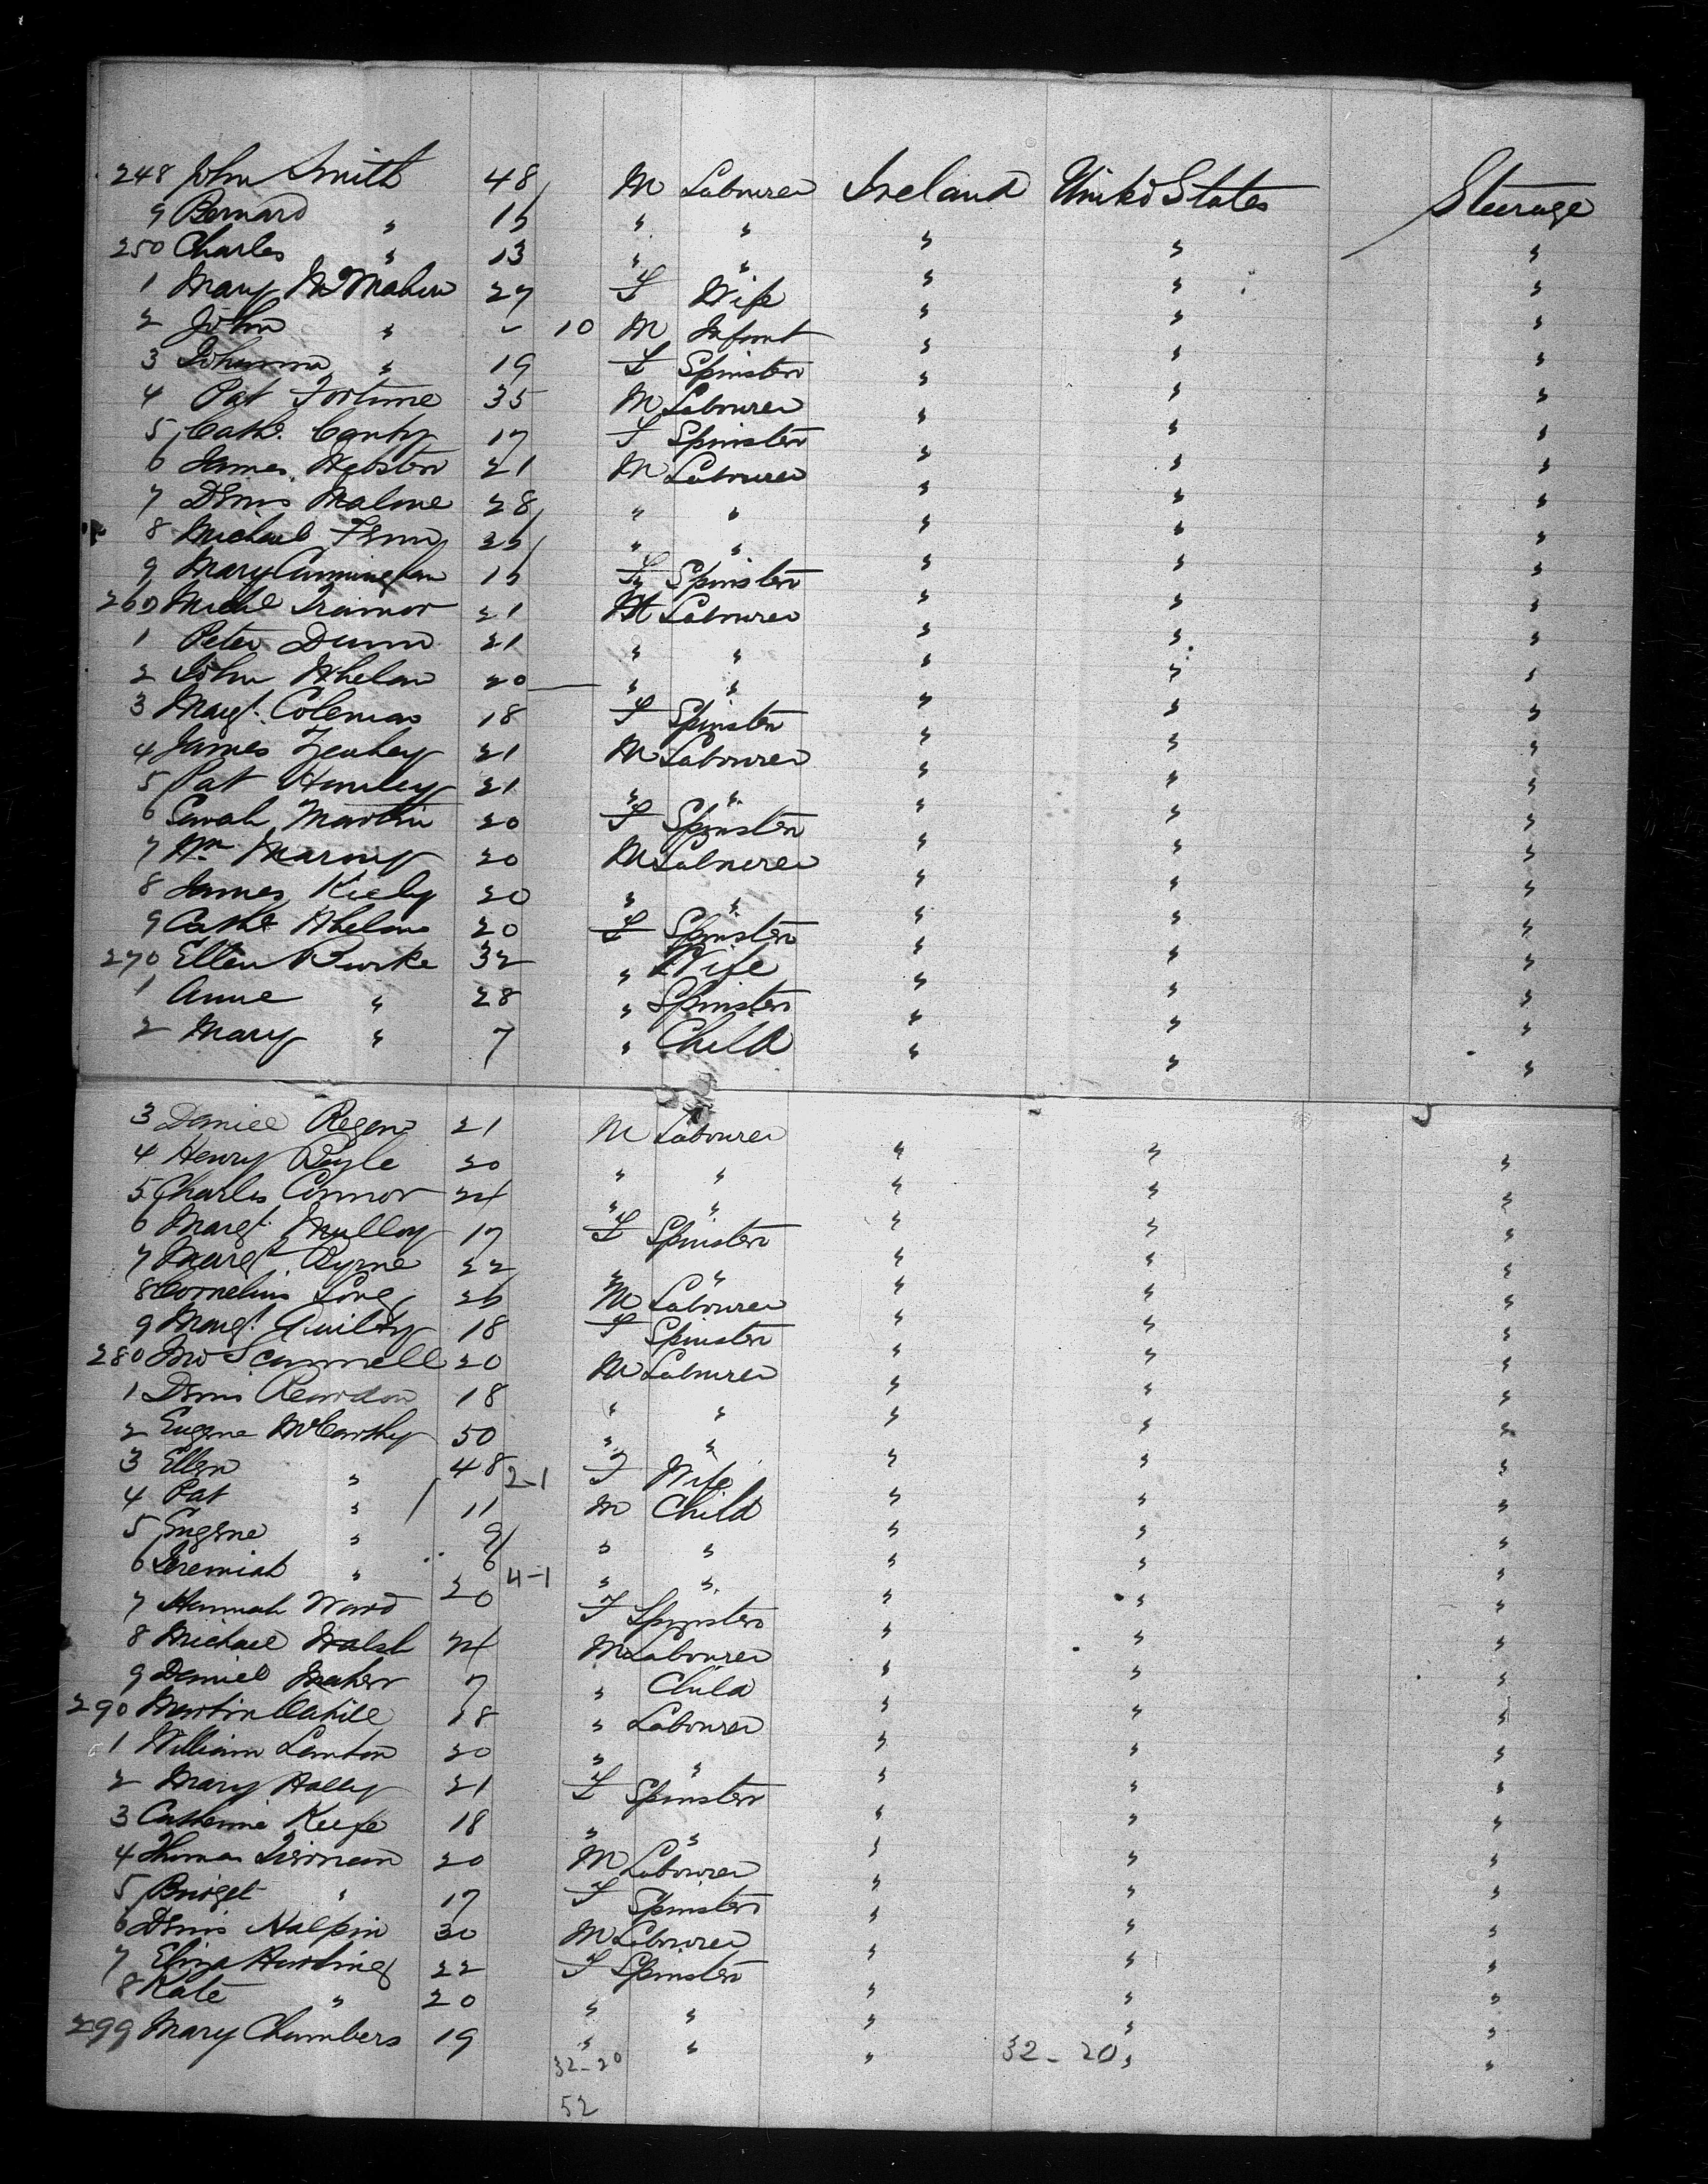 248 John Smith 48 M Labourer Ireland United States Steerage
9 Bernard " 16 " " " " "
250 Charles " 13 " " " " "
1 Mary McMahon 27 F Wife " " "
2 John " - 10 M Infant " " "
3 Johanna " 19 F Spinster " " "
4 Pat Fortune 35 M Labourer " " "
5 Cath. Canty 17 F Spinster " " "
6 James Webster 21 M Labourer " " "
7 Denis Malone 28 " " " " "
8 Michael 26 " " " " "
9 Mary Cunningham 16 F Spinster " " "
260 Michl Trainor 21 M Labourer " " "
1 Peter Dunn 21 " " " " "
2 John Whelan 20 " " " " "
3 Margt. Coleman 18 F Spinster " " "
4 James 21 M Labourer " " "
5 Pat 21 " " " " "
6 Sarah Martin 20 F Spinster " " "
7 Wm 20 M Labourer " " "
8 James Kiely 20 " " " " "
9 Cathe Whelan 20 F Spinster " " "
270 Ellen Burke 32 " Wife " " "
1 Anne " 28 " Spinster " " "
2 Mary " 7 " Child " " "
3 Daniel Regan 21 M Labourer " " "
4 Henry Boyle 20 " " " " "
5 Charles Connor 24 " " " " "
6 Margt. Mulloy 17 F Spinster " " "
7 Margt. Byrne 22 " " " " "
8 Cornelius Long 26 M Labourer " " "
9 Margt. Quilty 18 F Spinster " " "
280 Jno Scannell 20 M Labourer " " "
1 Denis Reardon 18 " " " " "
2 Eugene McCarthy 50 " " " " "
3 Ellen " 48 2-1 F Wife " " "
4 Pat " 11 M Child " " "
5 Eugene " 9 " " " " "
6 Jeremiah " 6 4-1 " " " " "
7 Hannah Ward 20 F Spinster " " "
8 Michael Walsh 24 M Labourer " " "
9 Daniel Maher 7 " Child " " "
290 Martin Cahill 18 " Labourer " " "
1 William Lenton 20 " " " " "
2 Mary Halley 21 F Spinster " " "
3 Catherine Keefe 18 " " " " "
4 Thomas Tiernan 20 M Labourer " " "
5 Bridget " 17 F Spinster " " "
6 Denis Halpin 30 M Labourer " " "
7 Eliza Harding 22 F Spinster " " "
8 Kate " 20 " " " " "
299 Mary Chambers 19 " " " " "
32-20 32-20
52